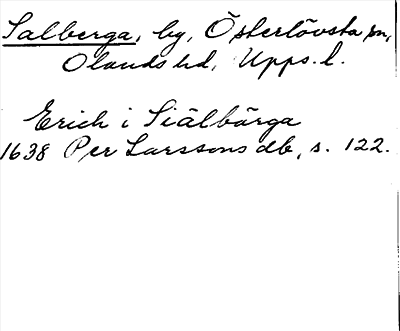 Salberga, by, Österlövsta sn,
Olands hd, Upps. l.
Erich i Siälbärga
1638 Per Larssons db, s. 122.